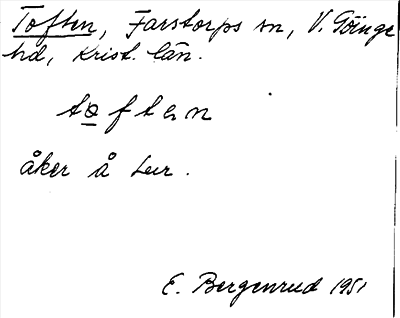 Toften, Farstorps sn, V. Göinge
hd, Krist. län.
toften
åker å Ler.
E. Bergenrud 1951